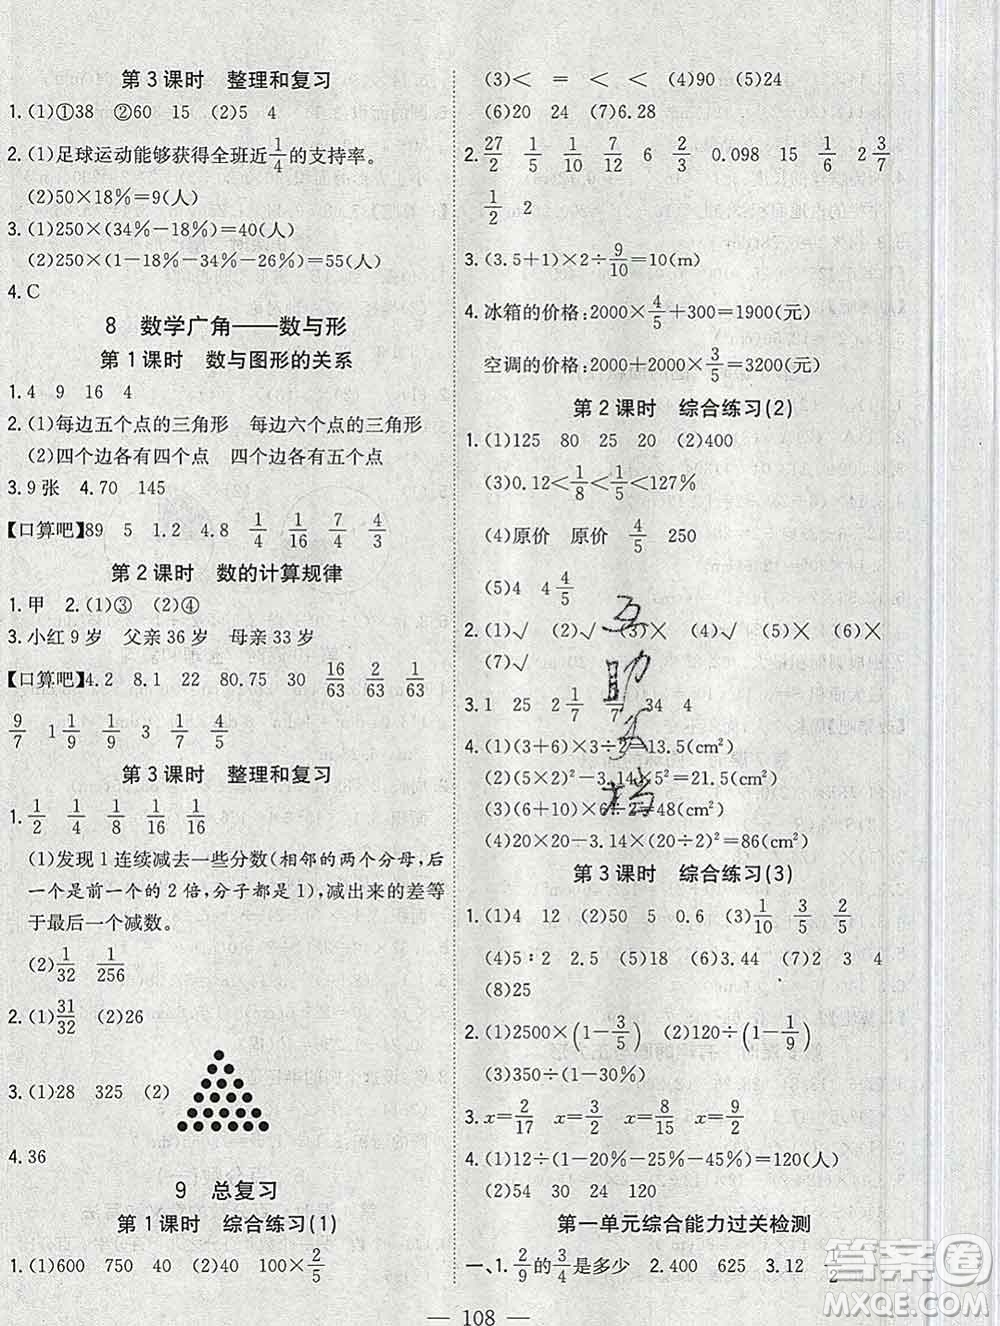 第3课时 整理和复习
1.(1)①38 ②60 15 (2)5 4
2.(1)足球运动能够获得全班近1/4的支持率。
(2)50×18%=9(人)
3.(1)250×(34%-18%)=40(人)
(2)250×(1-18%-34%-26%)=55(人)
4.C
8 数学广角——数与形
第1课时 数与图形的关系
1.4 9 16 4
2.(1)每边五个点的三角形 每边六个点的三角形
(2)四个边各有四个点 四个边各有五个点
3.9张 4.70 145
【口算吧】89 5 1.2 4.8 1/4 1/16 7/4 3/4
第2课时 数的计算规律
1.甲 2.(1)③ (2)④
3.小红9岁 父亲36岁 母亲33岁
【口算吧】4.2 8.1 22 80.75 30 16/63 2/63 1/63
9/7 1 1/9 1/3 2 9
第3课时 整理和复习
1.1/2 1/4 1/8 1/16 1/16
(1)发现1连续减去一些分数(相邻的两个分母,后
一个是前一个的2倍,分子都是1),减出来的差等
于最后一个减数。
(2)1/32 1/256
2.(1)31/32 (2)26
3.(1)28 325 (2)
4.36
9 总复习
第1课时 综合练习(1)
1.(1)600 750 40 (2)100×2/5
(3)< = < < (4)90 (5)24
(6)20 24 (7)6.28
2.27/2 1/5 1/10 7/12 6 2/3 0.098 15 1/6 2 3/7
1/2 2
3.(3.5+1)×2÷9/10=10(m)
4.冰箱的价格:2000×4/5+300=1900(元)
空调的价格:2000+2000×3/5=3200(元)
第2课时 综合练习(2)
1.(1)125 80 25 20 (2)400
(3)0.12<1/8<1/5<127%
(4)原价 原价 4/5 250
(5)4 4 4/5
2.(1)√ (2)√ (3)× (4)√ (5)× (6)×
(7)√
3.1 25 2 1/7 6/7 34 4
4.(1)(3+6)×3÷2=13.5(cm²)
(2)(5×2)²-3.14×5²=21.5(cm²)
(3)(6+10)×6÷2=48(cm²)
(4)20×20-3.14×(20÷2)²=86(cm²)
第3课时 综合练习(3)
1.(1)4 12 (2)50 5 0.6 (3)1/10 3/5 2/5
(4)5:2 2.5 (5)18 (6)144 (7)2 3 4
(8)25
2.(1)2500×(1-3/5) (2)120÷(1-1/9)
(3)350÷(1-30%)
3.x=2/17 x=3/5 x=8/15 x=9/2
4.(1)12÷(1-20%-25%-45%)=120(人)
(2)54 30 24 120
第一单元综合能力过关检测
一、1.2/9的3/4是多少 2.400 625 3.12 1/2
108
互
助
文
档
答案圈
MXQE.COM